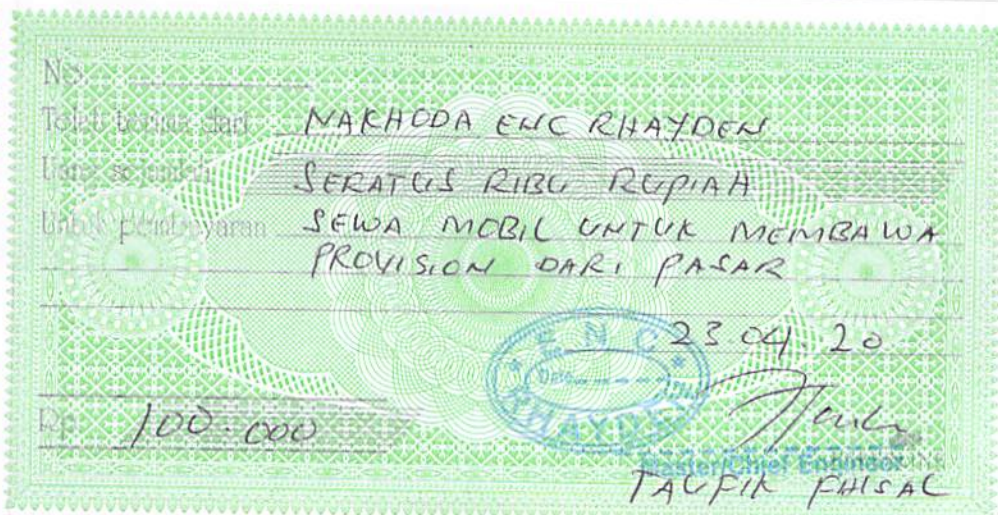 No.
Telah terima dari NAKHODA ENC RHAYDEN
Uang sejumlah SERATUS RIBU RUPIAH
Untuk pembayaran SEWA MOBIL UNTUK MEMBAWA
PROVISION DARI PASAR
23 04. 20
E N C
Date
RHAYDEN
Rp. 100.000
Master/Chief Engineer
TAUFIK FHISAL